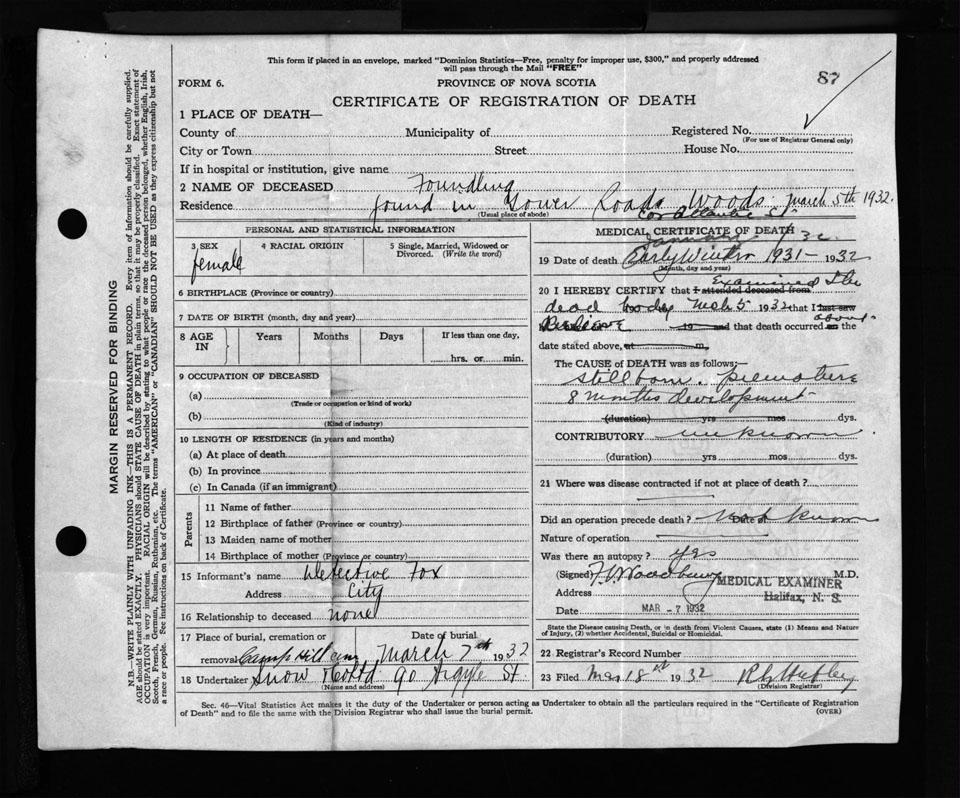 This form if placed in an envelope, marked "Dominion Statistics—Free, penalty for improper use, $300," and properly addressed
will pass through the Mail "FREE"
87
FORM 6.
PROVINCE OF NOVA SCOTIA
CERTIFICATE OF REGISTRATION OF DEATH
1 PLACE OF DEATH—
County of Municipality of Registered No.
(For use of Registrar General only)
City or Town Street House No.
If in hospital or institution, give name
2 NAME OF DECEASED Foundling
Residence found in Gower Roads Woods March 5th 1932.
(Usual place of abode)
cor Atlantic St.
PERSONAL AND STATISTICAL INFORMATION
3 SEX 4 RACIAL ORIGIN 5 Single, Married, Widowed or
Divorced. (Write the word)
female
6 BIRTHPLACE (Province or country)
7 DATE OF BIRTH (month, day and year)
8 AGE Years Months Days If less than one day,
IN
hrs. or min.
9 OCCUPATION OF DECEASED
(a)
(Trade or occupation or kind of work)
(b)
(Kind of industry)
10 LENGTH OF RESIDENCE (in years and months)
(a) At place of death
(b) In province
(c) In Canada (if an immigrant)
Parents
11 Name of father
12 Birthplace of father (Province or country)
13 Maiden name of mother
14 Birthplace of mother (Province or country)
15 Informant's name Detective Fox
Address City
16 Relationship to deceased none
17 Place of burial, cremation or Date of burial
removal Camp Hill Cem March 7th 1932
18 Undertaker Snow & Co Ltd 90 Argyle St.
(Name and addrd)
MEDICAL CERTIFICATE OF DEATH
January / 32.
19 Date of death Early Winter 1931 - 1932
(Month, day and year)
20 I HEREBY CERTIFY that I attended deceased from Examined the
dead body Mch 5 1932 that I last saw
Believe 19 and that death occurred on the about
date stated above, at m.
The CAUSE of DEATH was as follows:—
Stillborn. premature
8 months development
(duration) yrs mos dys.
CONTRIBUTORY unknown
(duration) yrs mos dys.
21 Where was disease contracted if not at place of death?
Did an operation precede death? Date of not known
Nature of operation
Was there an autopsy? yes
(Signed) F. V. Woodbury M.D.
MEDICAL EXAMINER
Address Halifax, N. S.
Date MAR -7 1932
State the Disease causing Death, or in death from Violent Causes, state (1) Means and
Nature of Injury, (2) whether Accidental, Suicidal or Homicidal.
22 Registrar's Record Number
23 Filed Mar 18th 1932
(Division Registrar)
Sec. 46—Vital Statistics Act makes it the duty of the Undertaker or person acting as Undertaker to obtain all the particulars required in the "Certificate of Registration
of Death" and to file the same with the Division Registrar who shall issue the burial permit. (OVER)
MARGIN RESERVED FOR BINDING
N.B.—WRITE PLAINLY WITH UNFADING INK—THIS IS A PERMANENT RECORD. Every item of information should be carefully supplied.
AGE should be stated EXACTLY. PHYSICIANS should STATE CAUSE OF DEATH in plain terms, so that it may be properly classified. Exact statement of
OCCUPATION is very important. RACIAL ORIGIN will be described by stating to what people or race the deceased person belonged, whether English, Irish,
Scotch, French, German, Russian, Ruthenian, etc. The terms "AMERICAN" or "CANADIAN" SHOULD NOT BE USED as they express citizenship but not
a race or people. See instructions on back of Certificate.